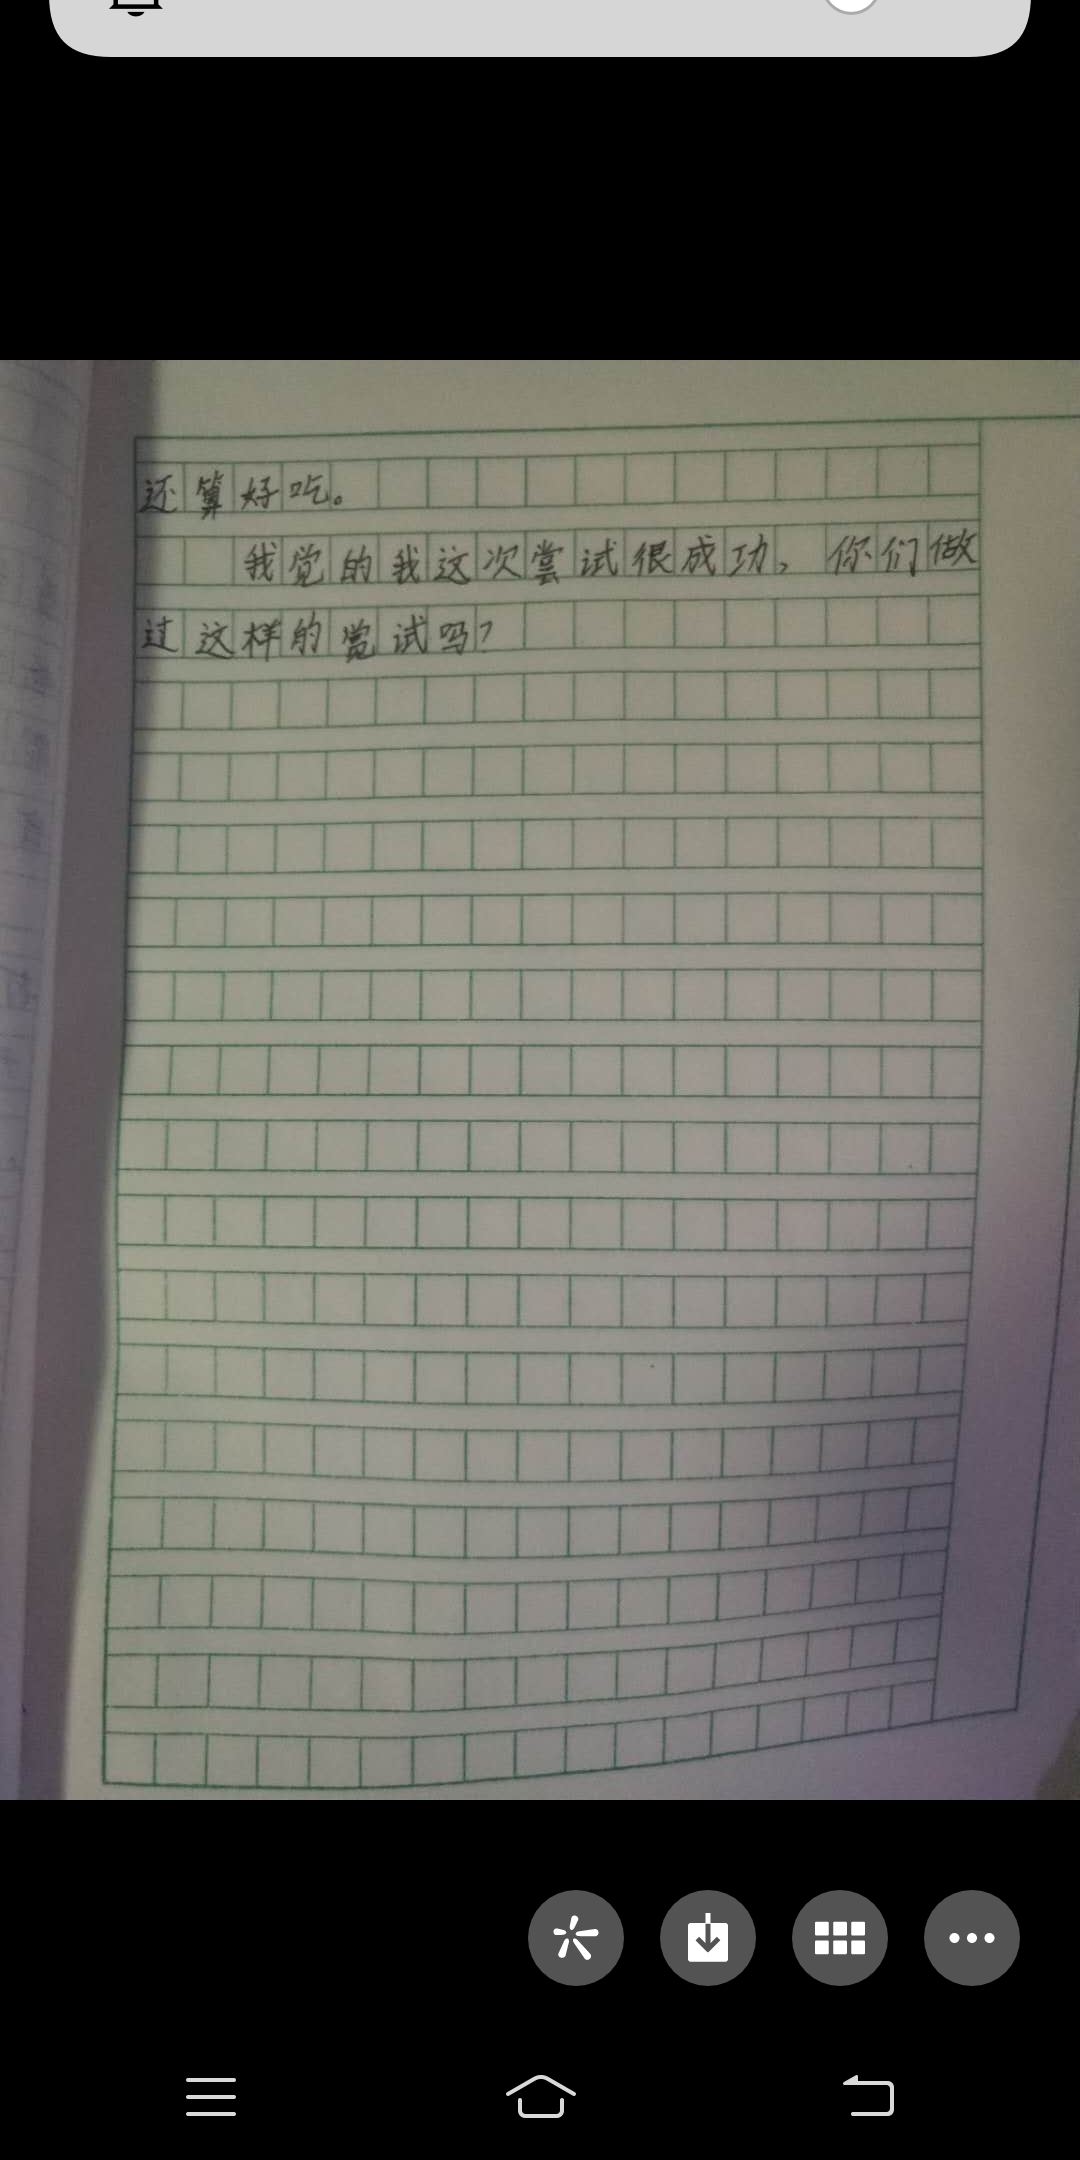 还算好吃。
我觉的我这次尝试很成功，你们做
过这样的尝试吗？